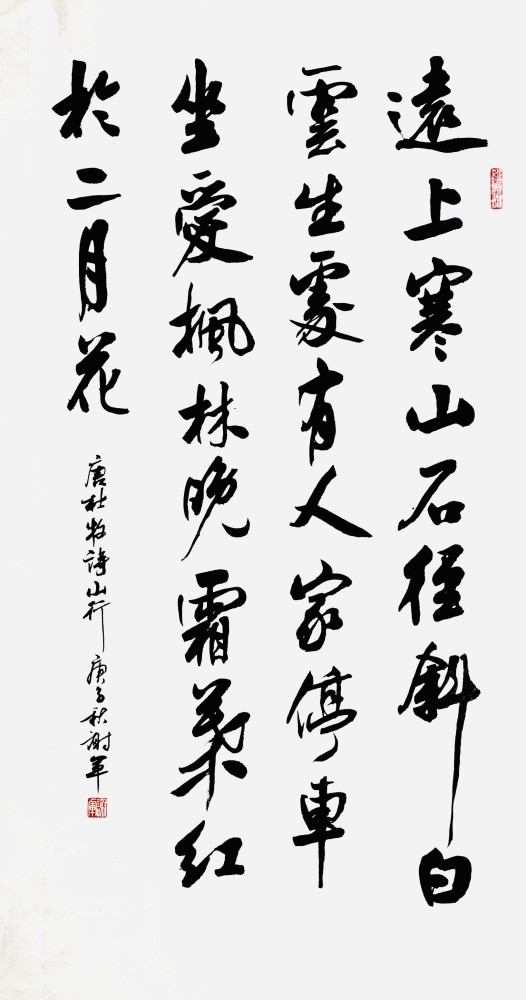 遠上寒山石徑斜白
雲生處有人家停車
坐愛楓林晚霜葉红
於二月花
唐杜牧詩山行 庚子秋謝軍